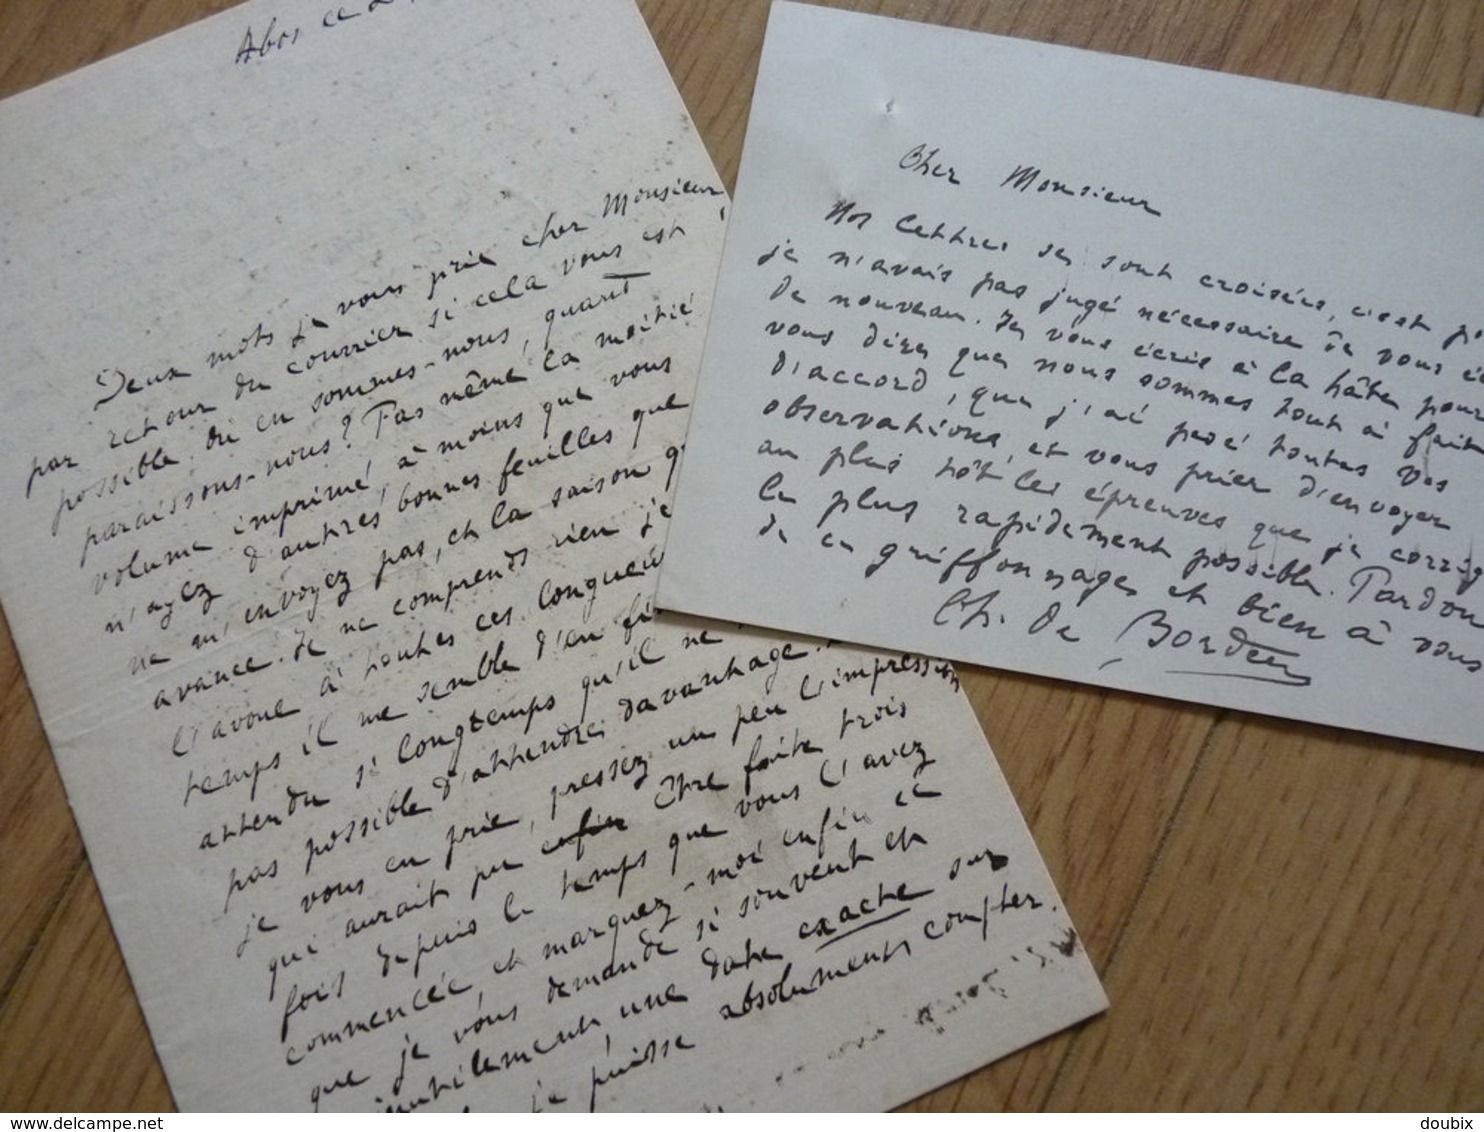 Abos ce 2
Deux mots je vous prie cher Monsieur
par retour du courrier si cela vous est
possible. Où en sommes-nous, quand
paraissons-nous? Pas même la moitié
volume imprimé, à moins que vous
n'ayez d'autres bonnes feuilles que
ne m'envoyez pas, et la saison
avance. Je ne comprends rien je
l'avoue à toutes ces longueurs
temps il me semble d'en
attendu si longtemps qu'il ne
pas possible d'attendre davantage.
je vous en prie, pressez un peu l'impression
qui aurait pu enfin être faite trois
fois depuis le temps que vous l'avez
commencée, et marquez-moi enfin ce
que je vous demande si souvent et
inutilement, une date exacte sur
je puisse absolument compter.
Cher Monsieur
Nos lettres se sont croisées, c'est
je n'avais pas jugé nécessaire de vous
de nouveau. Je vous écris à la hâte pour
vous dire que nous sommes tout à fait
d'accord, que j'ai pesé toutes vos
observations, et vous prier d'envoyer
au plus tôt les épreuves que je corrig
le plus rapidement possible. Pardon
de ce griffonnage et bien à vous
Ch. de Bordeu
www.delcampe.net
doubix